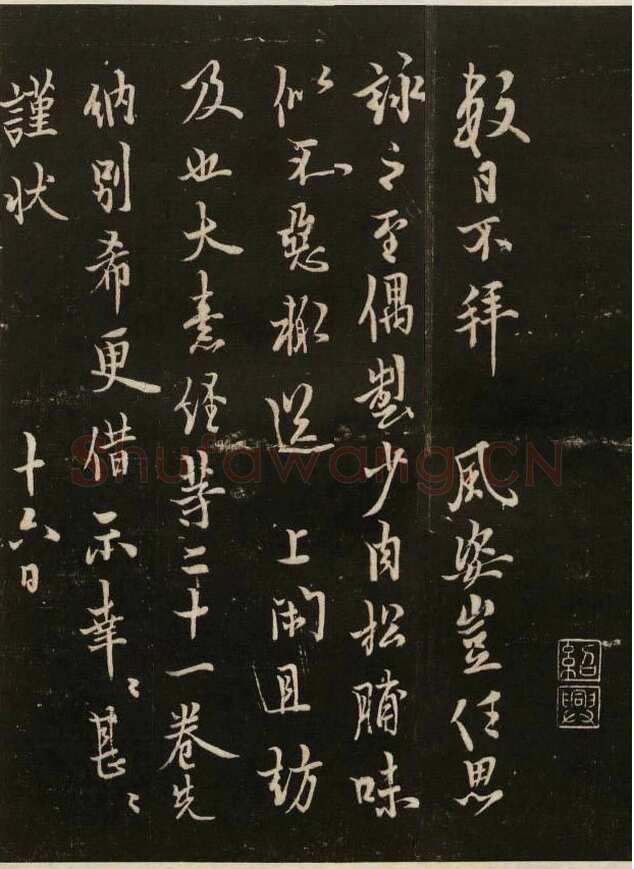 數日不拜 風姿豈任思
詠之至偶製少肉松脯味
似不惡漸送 上閑且訪
及也大素経等二十一卷先
納別希更借示幸〻甚〻
謹状 十六日
紹興
Shufawang.CN